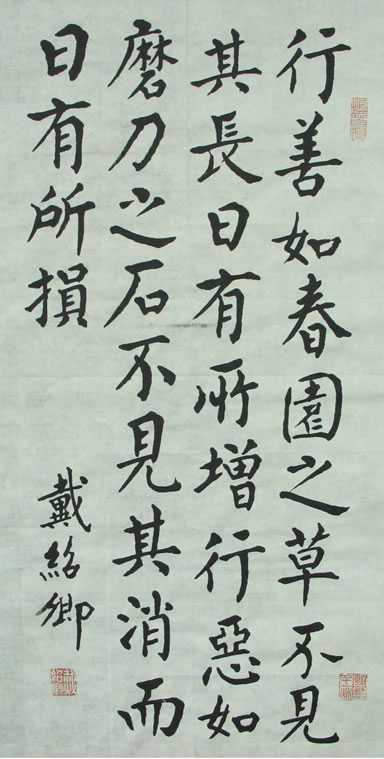 行善如春園之草不見
其長日有所增行惡如
磨刀之石不見其消而
日有所損
戴紹卿